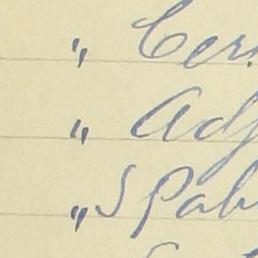 " Cer
" Adj
" S Pab